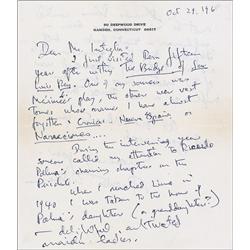 50 DEEPWOOD DRIVE
HAMDEN, CONNECTICUT 06517
Oct 29, 196
Dear Mr.
I just visited fifteen
years after writing The Bridge of San
Luis Rey. One of my sources was
Merimée's play, the other was vast
Tomes whose name I have almost
forgotten : Cronicas de Nueva España or
Narraciones....
During the intervening years
someone called my attention to Ricardo
Palma's charming chapters on the
Perichole.
When I reached Lima in
1940 I was taken to the home of
Palma's daughter (or granddaughter?)
— delightful
ladies.